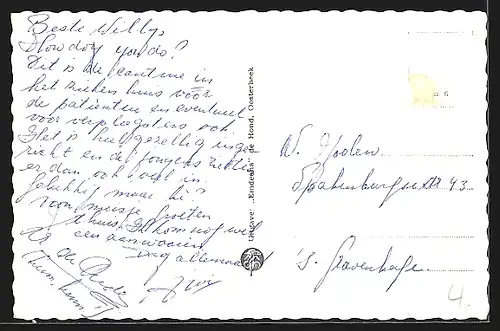 Beste Willy,
How do you do?
Dit is de cantine in
het ziekenhuis vóór
de patienten en eventueel
voor verplegsters ook.
Het is heel gezellig inge
richt en de jongens zitten
er dan ook veel in.
Gelukkig maar hè?
Voor muisje groeten
thuis, Ik kom nog wel
een aanwaaien
Dag allemaal
Uitgave: „Enndeeha" de Hond, Oosterbeek
W. Hoolen
43
's Gravenhage.
4.